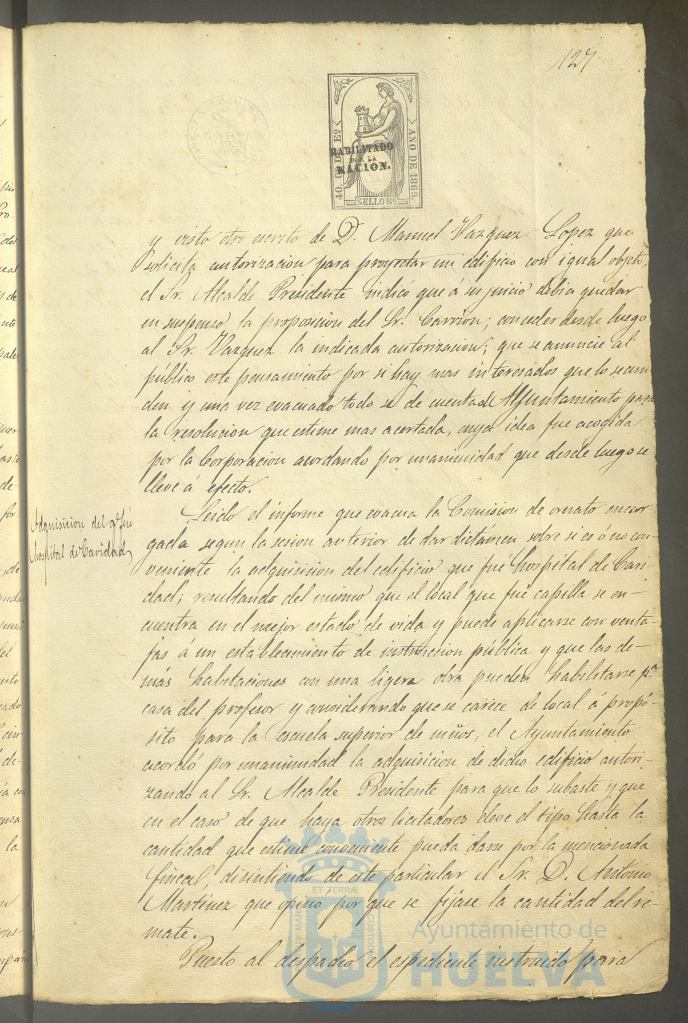 127
40. C.S DE Eº
AÑO DE 1869
HABILITADO
POR LA
NACION.
SELLO 8º
y visto otro escrito de D. Manuel Vazquez Lopez que
solicita autorizacion para proyectar un edificio con igual objeto,
el Sr. Alcalde Presidente indicó que á su juicio debia quedar
en suspenso la proposicion del Sr. Carrion; conceder desde luego
al Sr. Vazquez la indicada autorizacion; que se anuncie al
público este pensamiento por si hay mas interesados que lo secun-
den y una vez evacuado todo se de cuenta al Ayuntamiento para
la resolucion que estime mas acertada, cuya idea fue acogida
por la Corporacion acordando por unanimidad que desde luego se
lleve á efecto.
Adquisicion del qe. fué
Hospital de Caridad
Leido el informe que evacua la Comision de ornato encar
gada segun la sesion anterior de dar dictámen sobre si es ó no con-
veniente la adquisicion del edificio que fué hospital de Cari
dad; resultando del mismo que el local que fué capilla se en-
cuentra en el mejor estado de vida y puede aplicarse con venta-
jas á un establecimiento de instruccion pública y que las de-
más habitaciones con una ligera obra pueden habilitarse pa.
casa del profesor y considerando que se carece de local á propó-
sito para la escuela superior de niños, el Ayuntamiento
acordó por unanimidad la adquisicion de dicho edificio autori-
zando al Sr. Alcalde Presidente para que lo subaste y que
en el caso de que haya otros licitadores eleve el tipo hasta la
cantidad que estime conveniente pueda darse por la mencionada
finca, disintiendo de este particular el Sr. D. Antonio
Martinez que opinó por que se fijase la cantidad del re-
mate.
Puesto al despacho el espediente instruido para
Ayuntamiento de
HUELVA